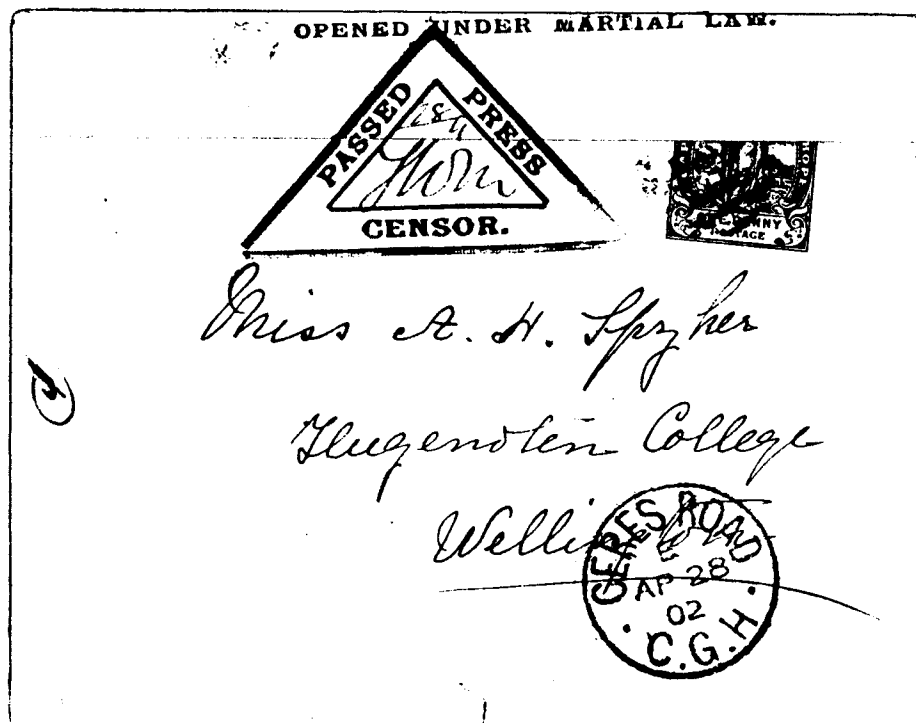 OPENED UNDER MARTIAL LAW.
PASSED PRESS
CENSOR.
28/4
PENNY
POSTAGE
Miss A. H. Spyker
Hugenotin College
Wellington
CERES ROAD
E
AP 28
02
C.G.H.